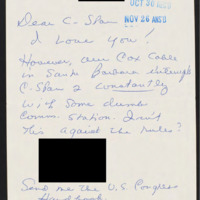 OCT 30 REC'D
NOV 26 ANS'D
Dear C-Span
I Love You!
However, our Cox Cable
in Santa Barbara interrupts
C-Span 2 constantly
w/ some dumb
Comm. station. Isn't
this against the rules?
Send me the U.S. Congress
Handbook.